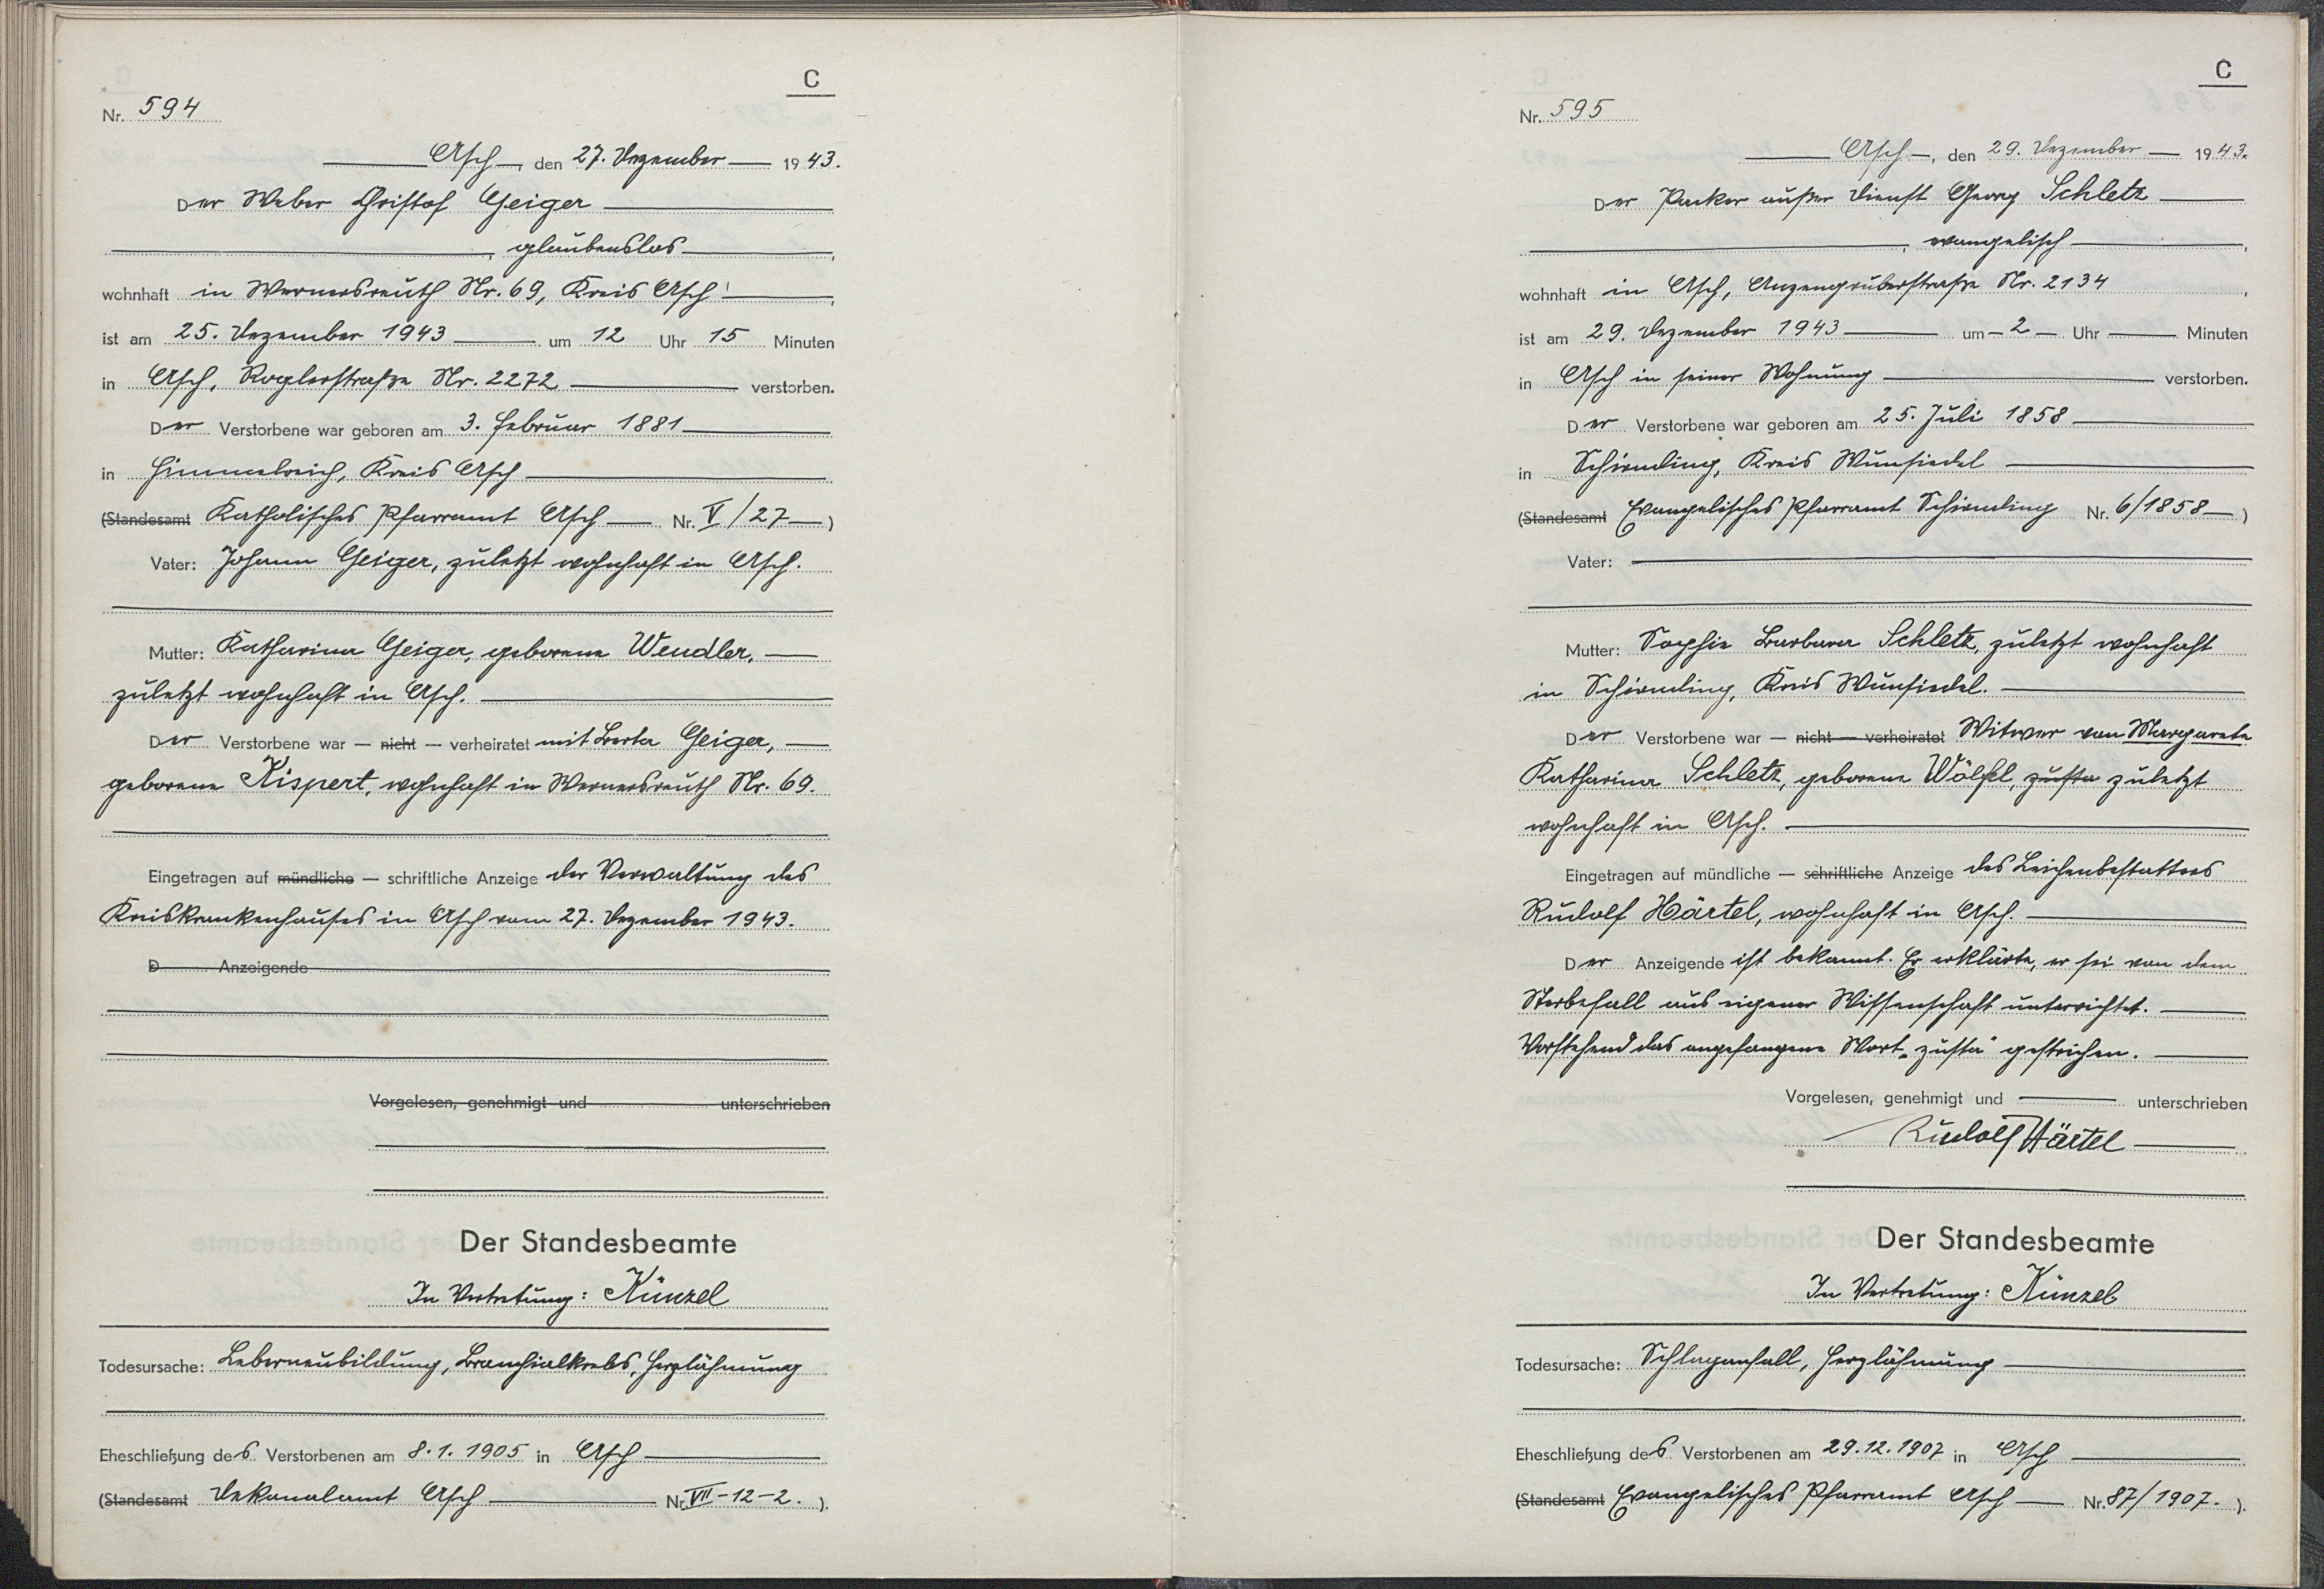 C
Nr. 594
Asch, den 27. Dezember 1943.
Der Weber Christof Geiger
, glaubenslos,
wohnhaft in Wernersreuth Nr. 69, Kreis Asch,
ist am 25. Dezember 1943 um 12 Uhr 15 Minuten
in Asch, Roglerstraße Nr. 2272 verstorben.
Der Verstorbene war geboren am 3. Februar 1881
in Himmelreich, Kreis Asch
(Standesamt Katholisches Pfarramt Asch Nr. V/27)
Vater: Johann Geiger, zuletzt wohnhaft in Asch.
Mutter: Katharina Geiger, geborene Wendler,
zuletzt wohnhaft in Asch.
Der Verstorbene war — nicht — verheiratet mit Berta Geiger,
geborene Kispert, wohnhaft in Wernersreuth Nr. 69.
Eingetragen auf mündliche — schriftliche Anzeige der Verwaltung des
Kreiskrankenhauses in Asch vom 27. Dezember 1943.
D Anzeigende
Vorgelesen, genehmigt und unterschrieben
Der Standesbeamte
In Vertretung: Künzel
Todesursache: Leberneubildung, Bronchialkrebs, Herzlähmung
Eheschließung des Verstorbenen am 8.1.1905 in Asch
(Standesamt Dekanalamt Asch Nr. VII-12-2.).
C
Nr. 595
Asch, den 29. Dezember 1943.
Der Packer außer Dienst Georg Schletz
, evangelisch,
wohnhaft in Asch, Anzengruberstraße Nr. 2134,
ist am 29. Dezember 1943 um 2 Uhr Minuten
in Asch in seiner Wohnung verstorben.
Der Verstorbene war geboren am 25. Juli 1858
in Schirnding, Kreis Wunsiedel
(Standesamt Evangelisches Pfarramt Schirnding Nr. 6/1858)
Vater:
Mutter: Sophie Barbara Schletz, zuletzt wohnhaft
in Schirnding, Kreis Wunsiedel.
Der Verstorbene war — nicht — verheiratet Witwer von Margareta
Katharina Schletz, geborene Wölfel, zusta zuletzt
wohnhaft in Asch.
Eingetragen auf mündliche — schriftliche Anzeige des Leichenbestatters
Rudolf Härtel, wohnhaft in Asch.
Der Anzeigende ist bekannt. Er erklärte, er sei von dem
Sterbefall aus eigener Wissenschaft unterrichtet.
Vorstehend das angefangene Wort „zusta" gestrichen.
Vorgelesen, genehmigt und unterschrieben
Rudolf Härtel
Der Standesbeamte
In Vertretung: Künzel
Todesursache: Schlaganfall, Herzlähmung
Eheschließung des Verstorbenen am 29.12.1907 in Asch
(Standesamt Evangelisches Pfarramt Asch Nr. 87/1907.).